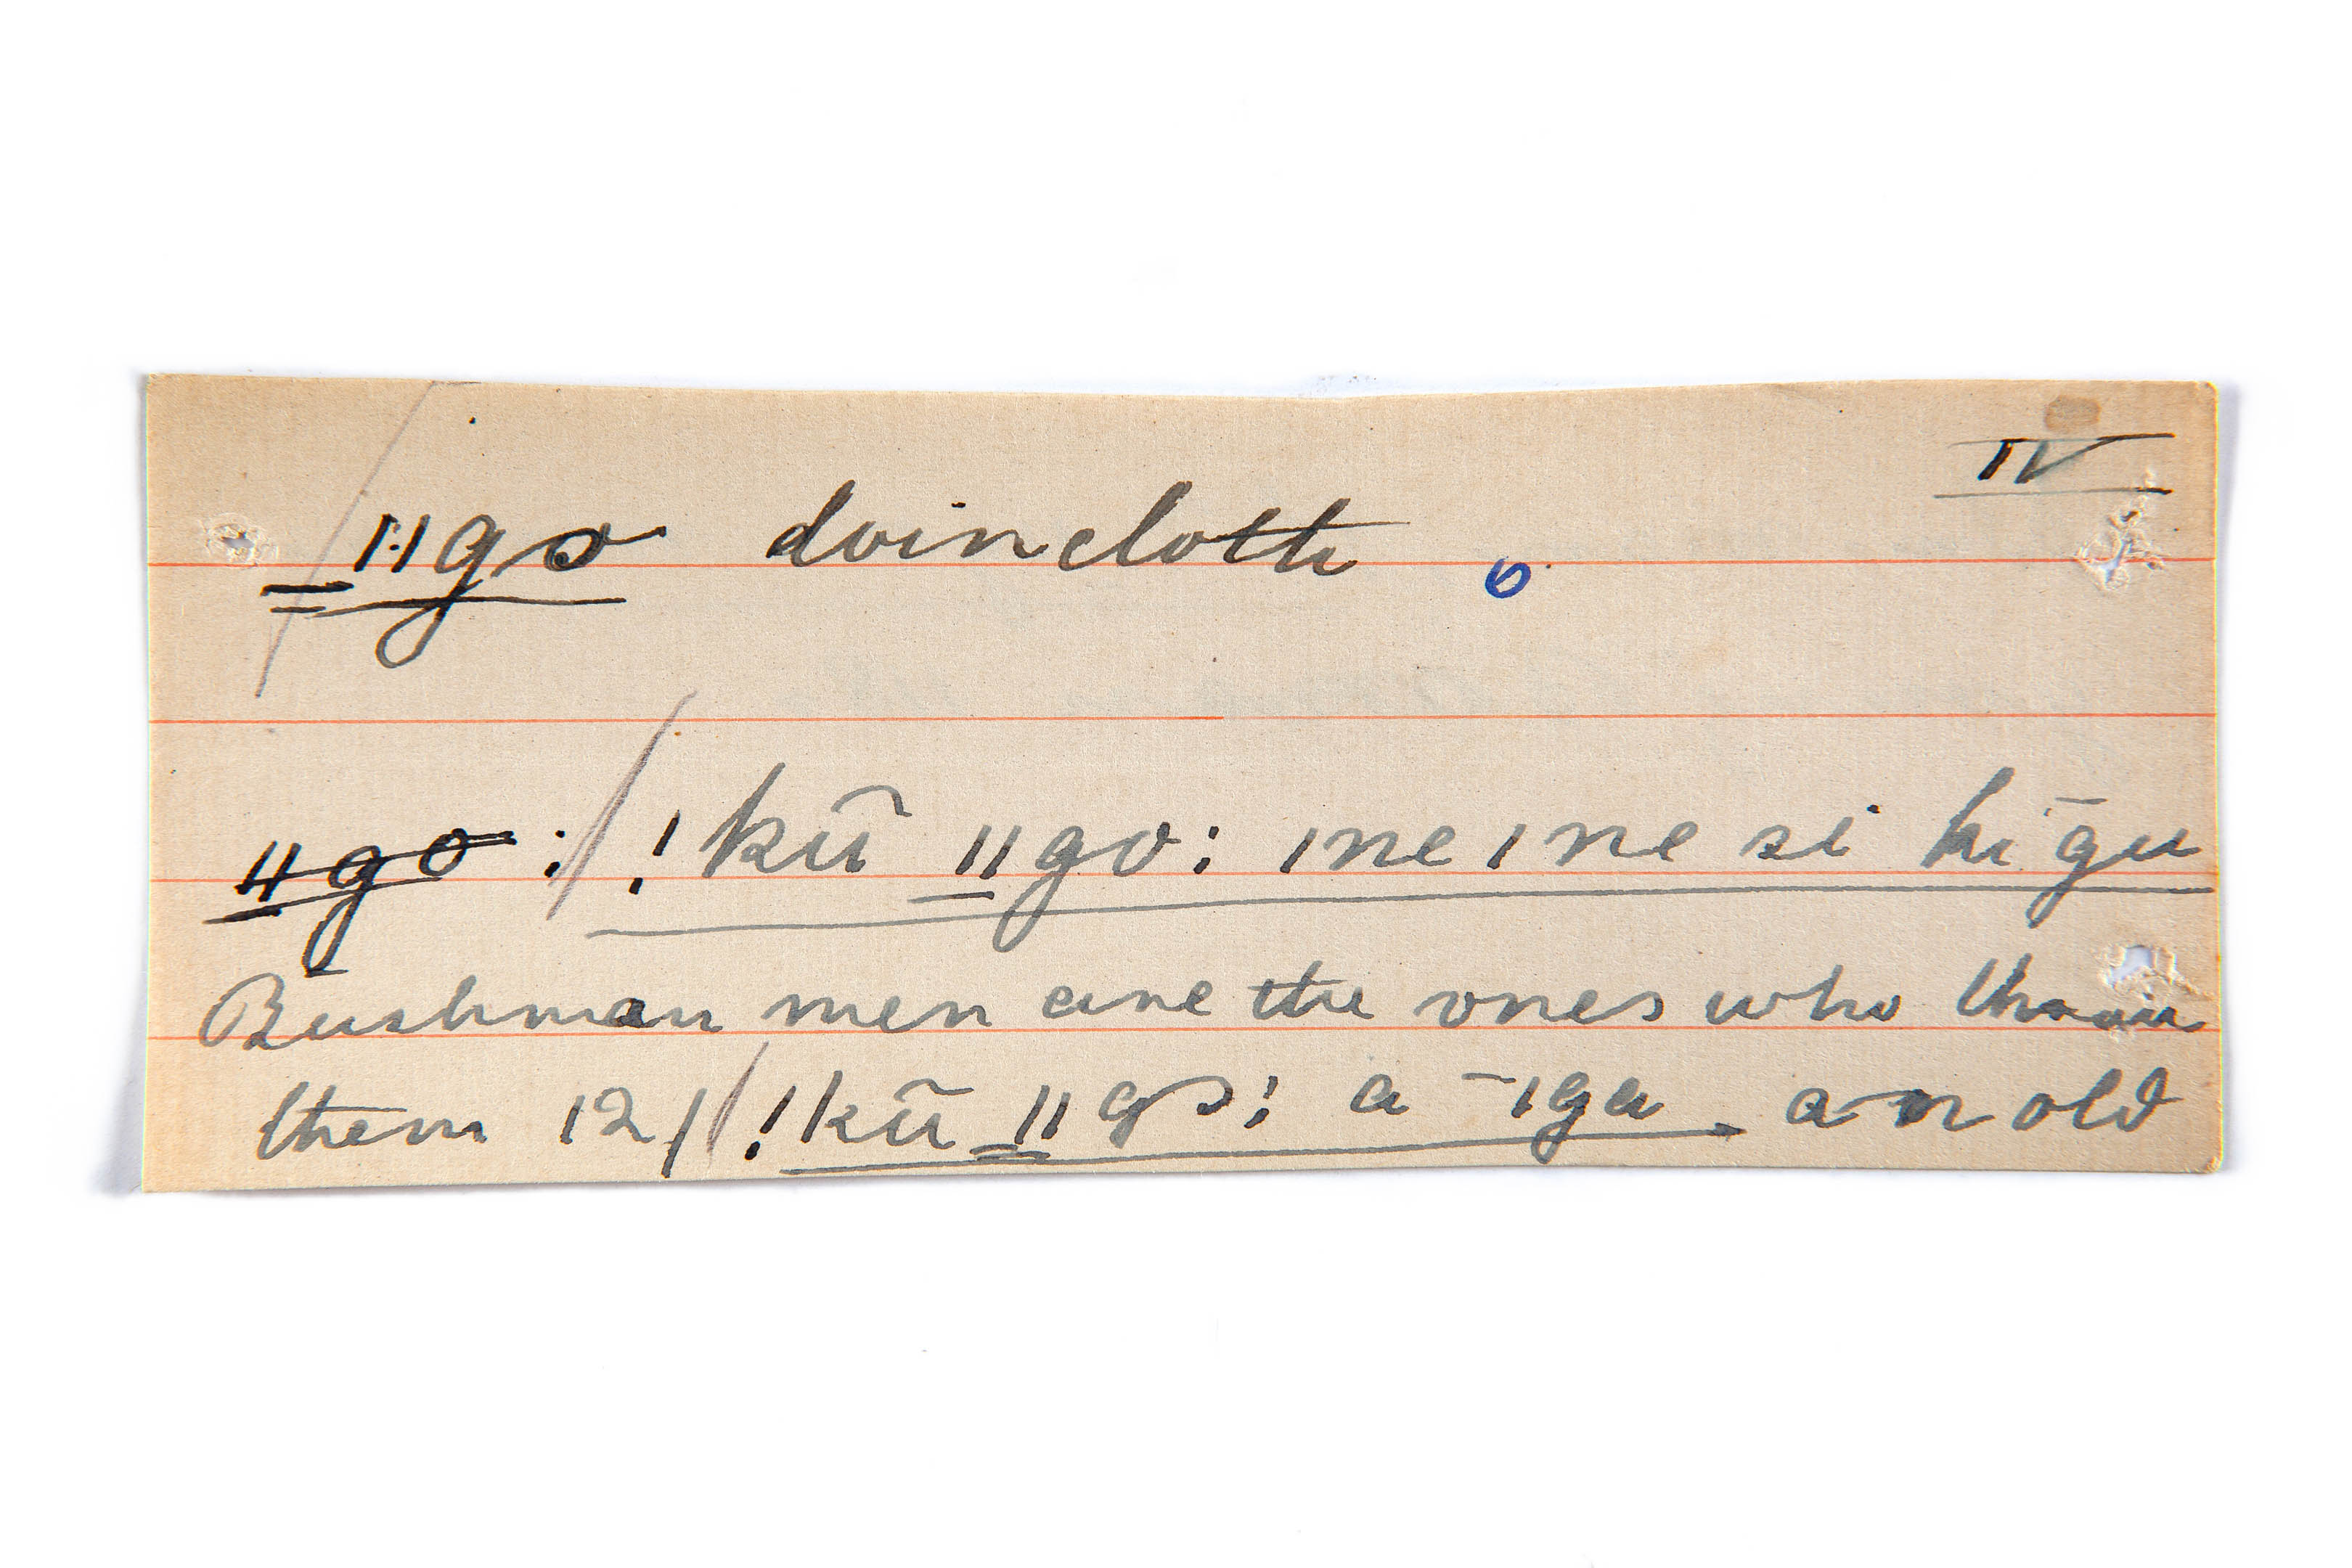 IV
ǁgo loincloth 6
ǁgo : / !kū ǁgo: ǀneǀne si hi ḡu
Bushman men are the ones who
them 12/ / !kū ǁgo: a ‾ǀga an old